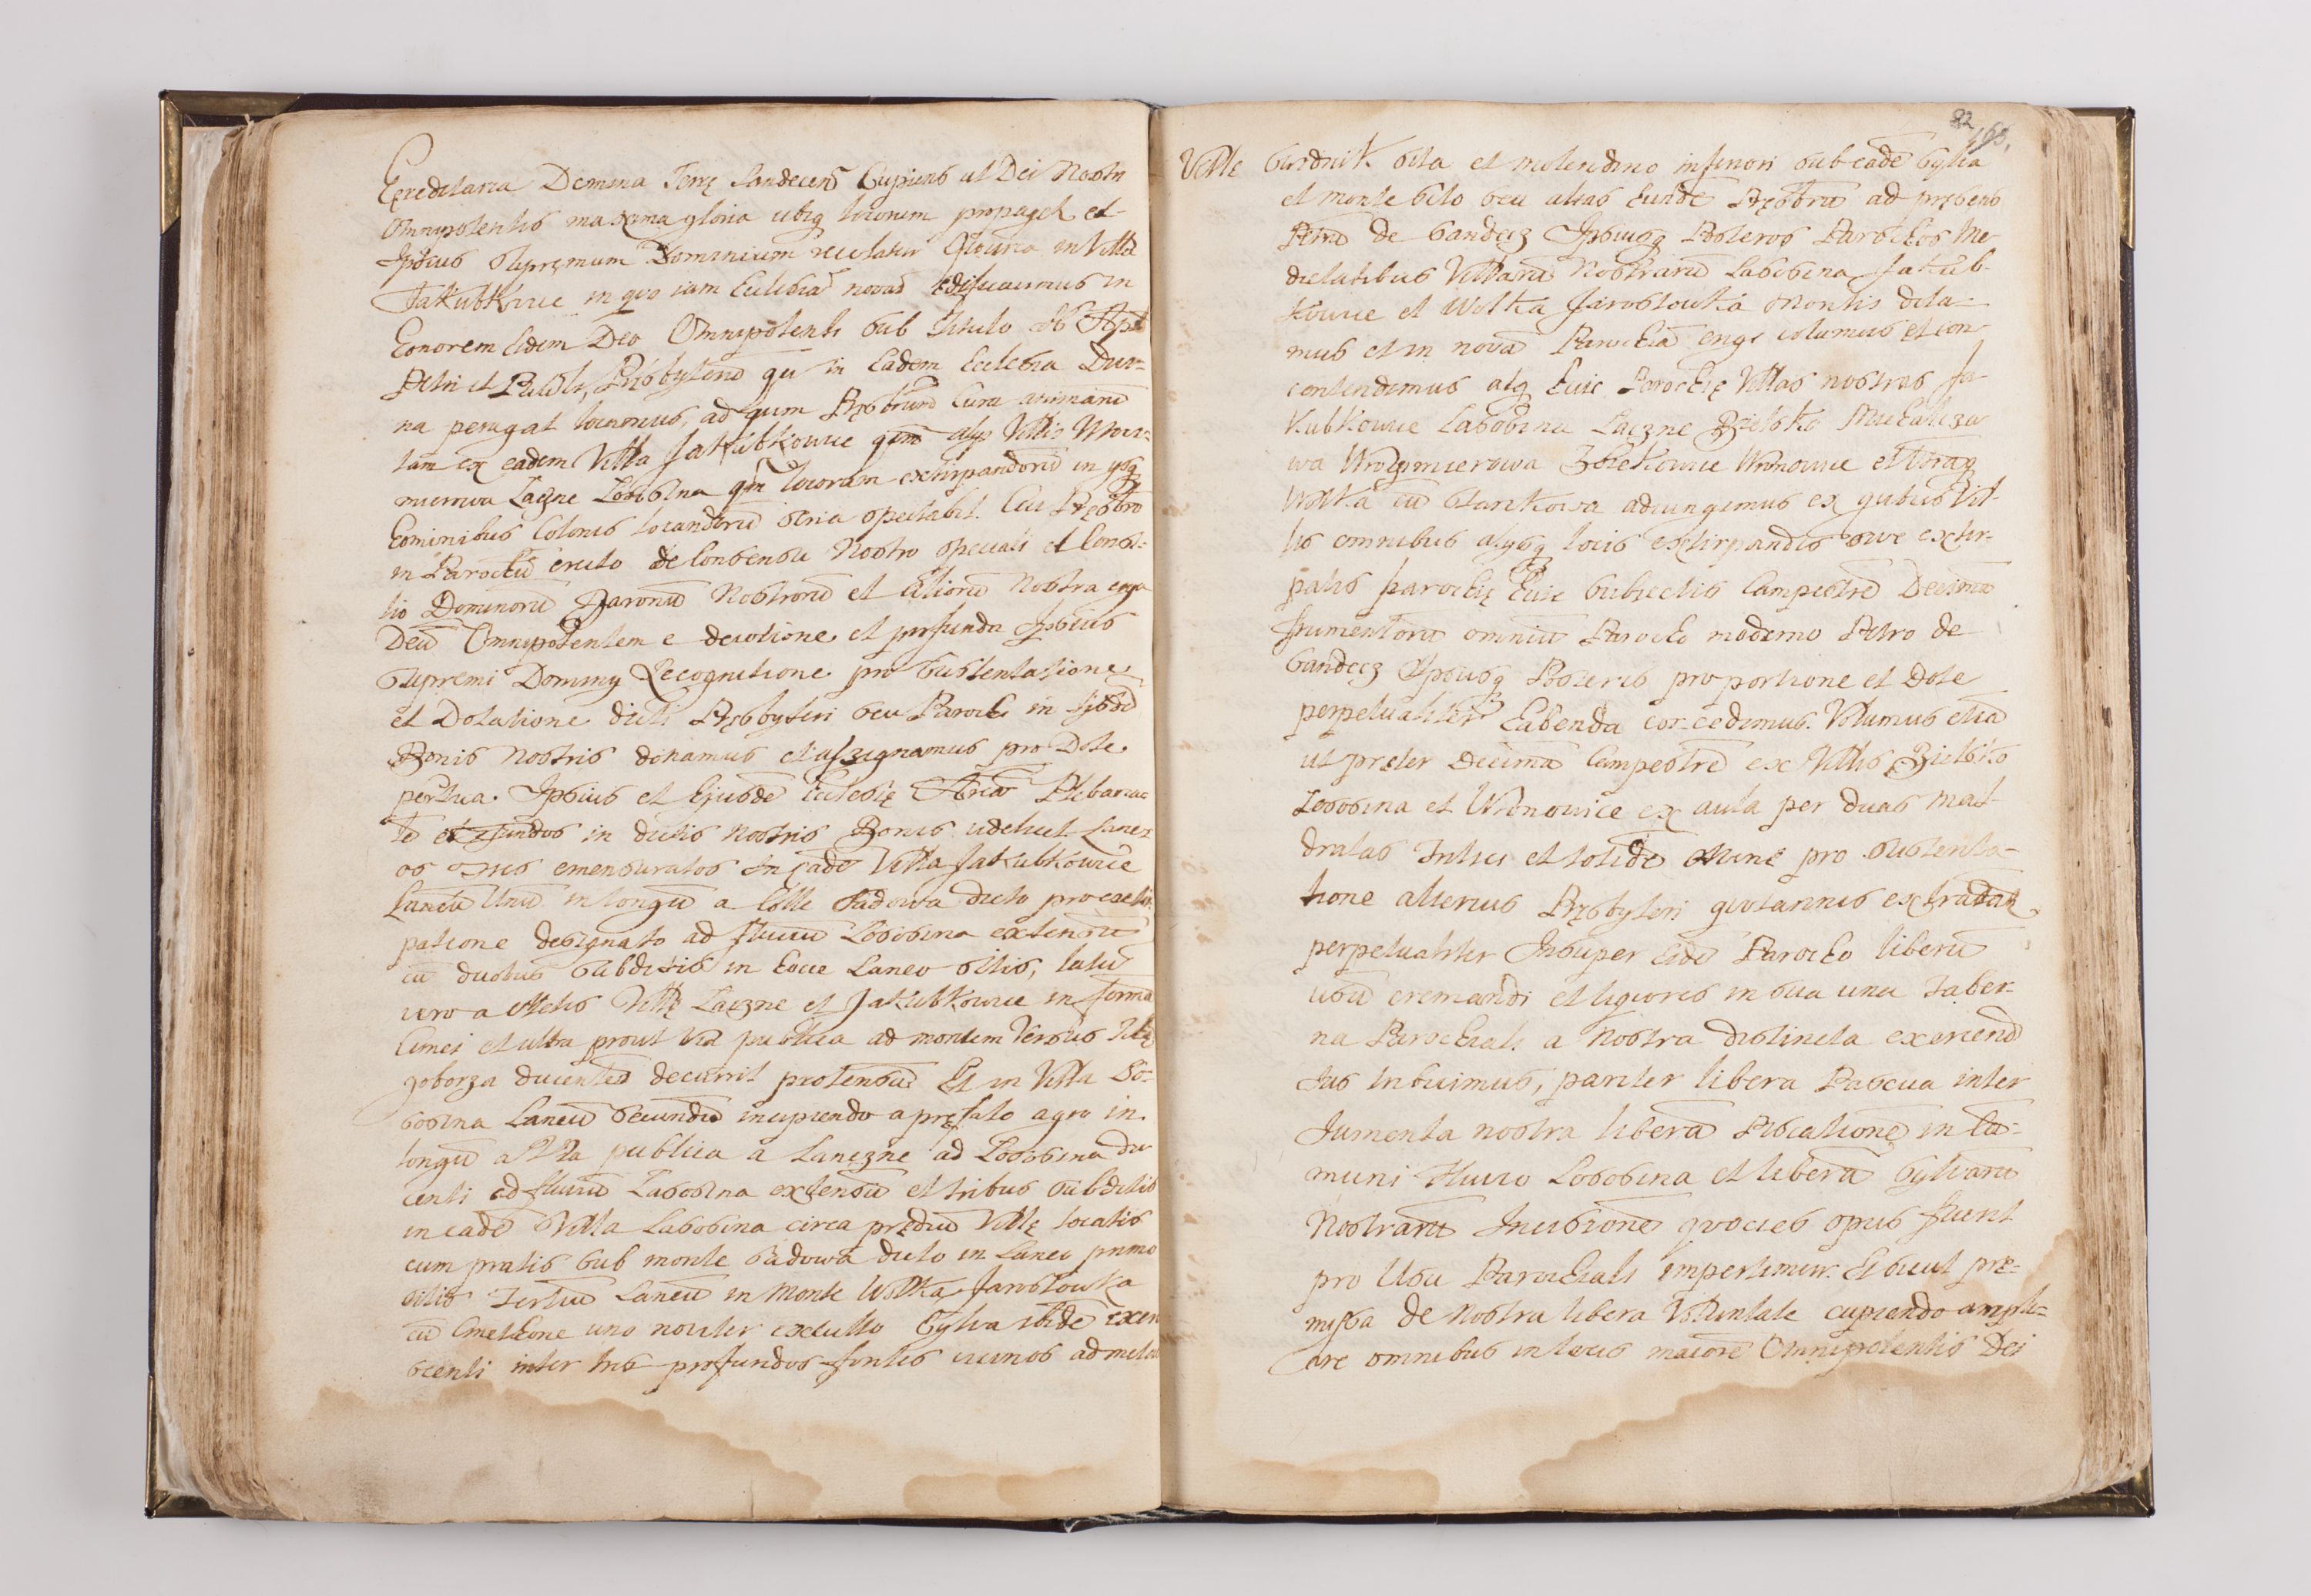 Hæreditaria Domina Terrę Sandecens̄ Cupiens ut Dei Nostri
Omnipotentis maxima gloria ubiq locorum propaget et
Ipsius Supręmum Dominium recolatur Ecclesia in Villa
Jakubkowice in qvo iam Ecclesiā novā ędificavimus in
Honorem eidem Deo Omnipotenti sub Titulo SS App
Petri et Pauli, Pręsbyterū qui in eadem Ecclesia Divi-
na peragat locavimus, ad qvem Pręsbiterū Cura animarū
tam ex eadem Villa Jakubkowice qvā alys Villis Wroci-
mierowa Łaczne Łososina qvā locorum extirpandorū in ysq
hominibus Colonis locandorū seria spectabit. Cui Pręsbro
in Parochū erecto de Consensu Nostro speciali et Consi-
lio Dominorū Baronū Nostrorū et aliorū Nostra erga
Deū Omnipotentem e devotione et profunda Ipsius
Supremi Dominy Recognitione pro Sustentatione
et Dotatione dicti Pręsbyteri seu Parochi in ijsdē
Bonis Nostris donamus et assignamus pro Dote
perpetua Ipsius et Ejusdē Ecclesię Plebana
et fundos in dictis Nostris Bonis videlicet Lane-
os Tres emensuratos In eadē Villa Jakubkowice
Laneū Unū in longū a Colle Sadowa dicto pro
patione designato ad fluviū Łososina extensū
cū duobus subditis in hocce Laneo sitis, latū
vero a Metis Villę Łaczne et Jakubkowice in forma
limes et ultra prout via publica ad montem versus
zoborza ducentes decurrit protensū Et in Villa Ło-
sosina Laneū secundū incipiendo a pręfato agro in
longū a Via publica a Laneczne ad Łososina du
centi ad fluviū Łososina extensū et tribus subditis
in eadē Villa Łososina circa prędiū Villę locatis
cum pratis sub monte Sadowa dicto in Laneo primo
sitis Tertiū Laneū in Monte Wolka Jarosłowka
cū Cmethone uno noviter exculto Sylva ibidē
scenti inter tres profundos fontes vicinos ad
82
163.
Ville Gurdnik sita et molendino inferiori sub eadē Sylva
et monte sito seu alias eundē Pręsbrū ad pręsens
Petrū de Sandecz Ipsiusq Posteros Parochos Me
dietatibus Villarū Nostrarū Łososina Jakub-
kowice et Wolka Jarosłowka Montis dota-
mus et in novā Parochiā erigi volumus et con
contendimus atq huic Parochię Villas nostras Ja-
kubkowice Łososina Łaczne Bielsko Michalczo
wa Wrocymierowa Zbiekowice Wronowice et Utraq
Wolka cū Stankowa adiungimus ex qvibus Vil-
lis omnibus alysq locis extirpandis sive extir-
patis parochię huic subiectis Campestrē Decimā
frumentorū omniū Parocho moderno Petro de
Sandecz Ipsiusq Posteris pro portione et Dote
perpetualiter habenda concedimus. Volumus etiā
ut pręter decimā Campestrē ex Villis Bielsko
Łososina et Wronowice ex aula per duas mal-
dratas Tritici et totidē Avenę pro Sustenta-
tione alterius Pręsbyteri qvotannis extradat
perpetualiter Insuper eidē Parocho liberū
usū cremandi et liqvores in sua una Taber-
na Parochiali a Nostra distincta exercend
Jus tribuimus, pariter libera Pascua inter
Jumenta nostra liberā Piscationē in Cō-
muni Fluvio Łososina et liberā Sylvarū
Nostrarū Incisionē qvocies opus fuerit
pro Usu Parochiali impertimur. Et sicut prę-
missa de Nostra libera Voluntate cupiendo ampli-
are omnibus in locis maiorē Omnipotentis Dei